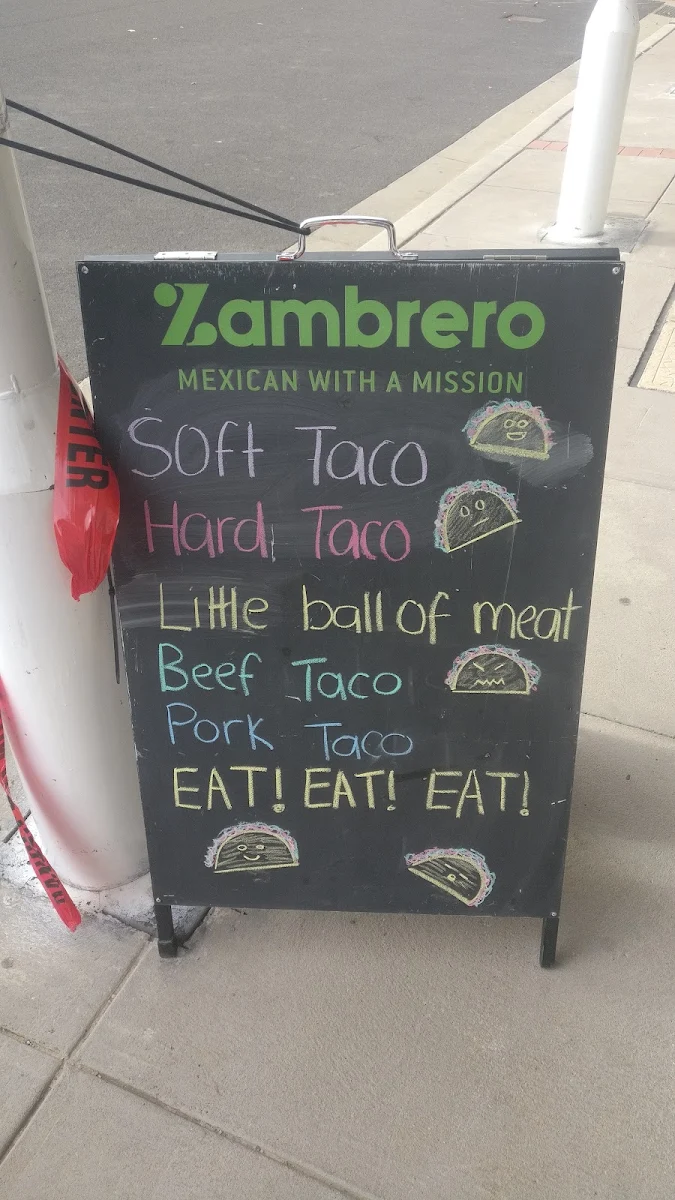 Zambrero
MEXICAN WITH A MISSION
Soft Taco
Hard Taco
Little ball of meat
Beef Taco
Pork Taco
EAT! EAT! EAT!